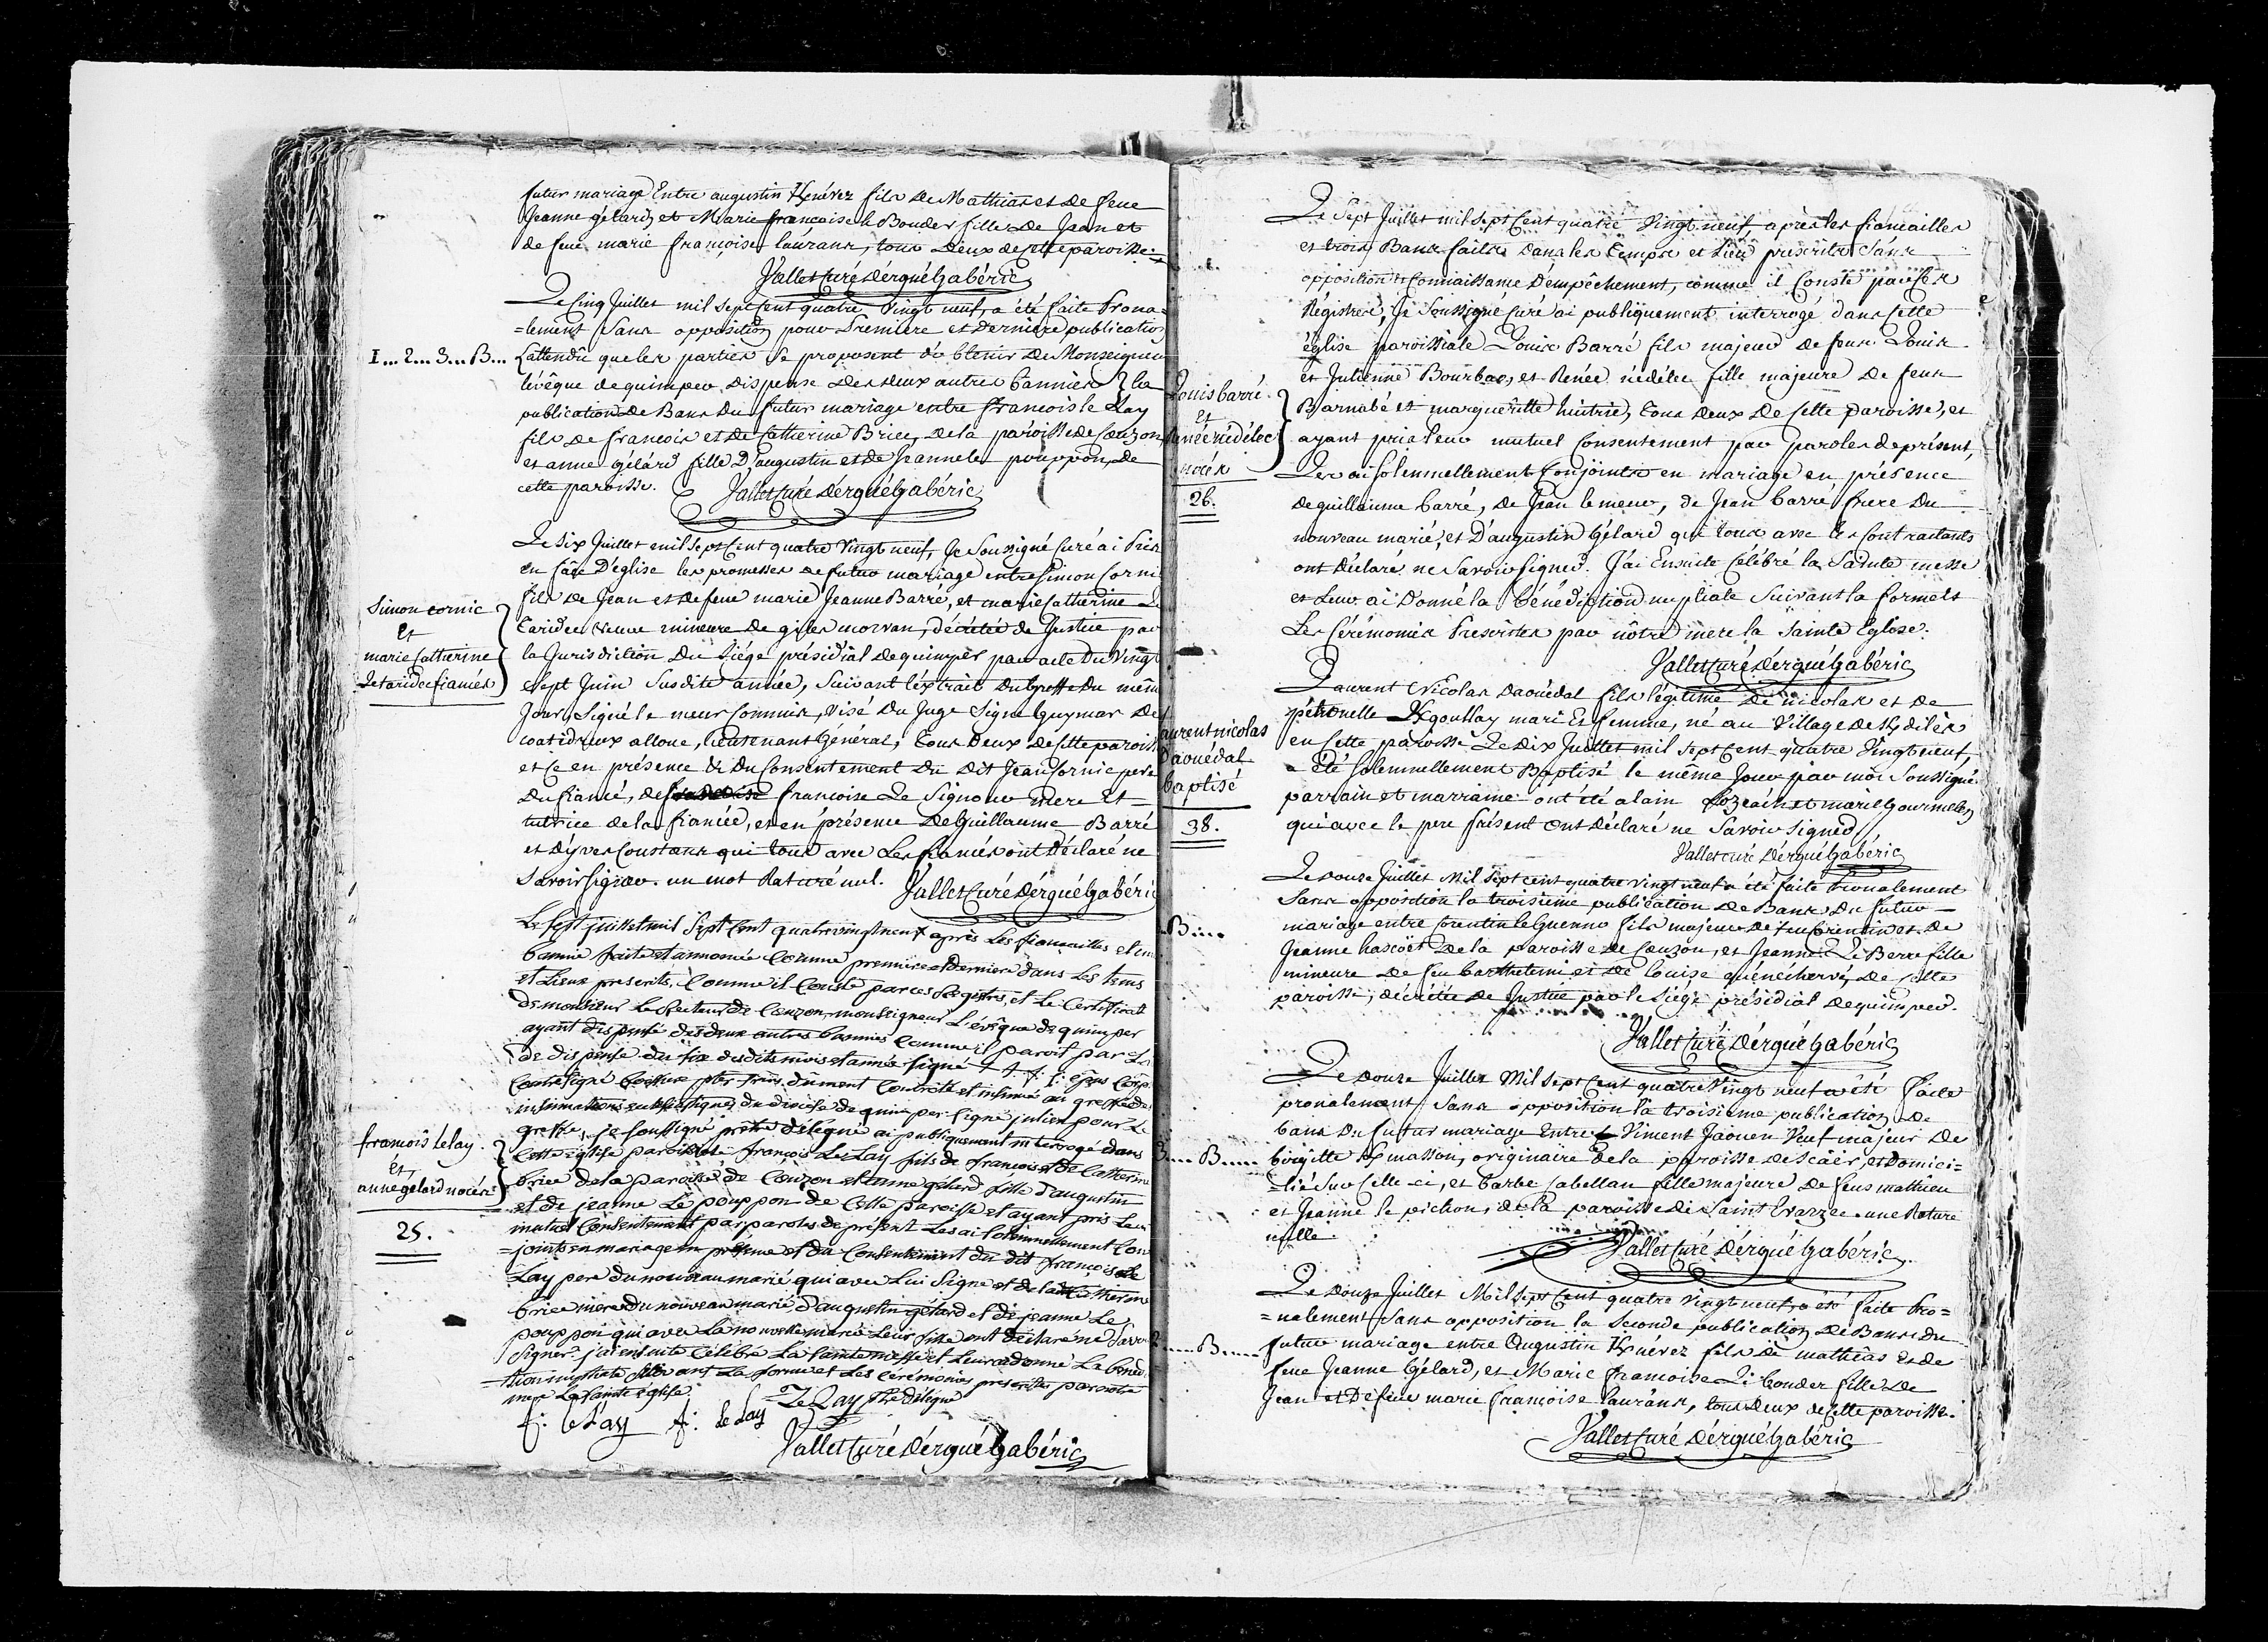 futur mariage Entre augustin Kenévez fils De Mathias et De feue
Jeanne gélard, et Marie françoise le Bouder fille De Jean et
de feue marie françoise laurans, tous Deux de cette paroisse.
Vallet Curé Dergué Gabéric
Le Cinq Juillet mil sept Cent quatre Vingt neuf, a été faite Prona=
=lement Sans opposition pour Premiere et derniere publication
I... 2... 3... B...
(attendû que les parties Se proposent d'obtenir De Monseigneur
lévêque de quimper dispense des deux autres bannies) la
publication De Bans Du futur mariage entre francois le Lay
fils de francois et de Catherine Brice, de la paroisse de Cuzon,
et anne gélard fille D'augustin et de Jeanne le pouppon, de
cette paroisse. Vallet Curé Dergué Gabéric
Le Six Juillet mil Sept Cent quatre Vingt neuf, Je Soussigné Curé ai Pris
en face D'église les promesses de futur mariage entre Simon Cornic
Simon cornic
Et
marie Catherine
Le taridec fiancés
fils De Jean et de feue marie Jeanne Barré, et marie Catherine Le
taridec Veuve mineure de giles morvan, décrétée de Justice par
la Jurisdiction Du Siége présidial de quimper par acte Du Vingt
Sept Juin Susdite année, Suivant l'extrait Du greffe Du même
Jour, Signé le meur Commis, Visé Du Juge Signé Guymar De
coatidreux alloue, lieutenant Général, tous Deux de cette paroisse
et ce en présence & Du Consentement Du Dit Jean Cornic pere
Du fiancé, de francoise Le Signour mere et
tutrice de la fiancée, et en présence De Guillaume Barré
et D'yves Constans qui tous avec Les fiancés ont Déclaré ne
Savoir Signer. un mot Raturé nul. Vallet Curé Dergué Gabéric
Le Sept juillet mil Sept Cent quatre vingt neuf après Les fiancailles et une
bannie faite et annoncée Comme premiere et derniere dans Les tems
et Lieux prescrits, Comme il Conste par ces Registres, et Le Certificat
de monsieur Le Recteur de Cuzon, monseigneur L'évêque de quimper
ayant dispensé des deux autres bannies Comme il paroit par La
de dispense du six desdits mois et année signé
dument Controllé et insinué au greffe des
insinuations eclesiastiques du diocese de quimper signé julien pour Le
greffe, je soussigné prêtre délégué ai publiquement interrogé dans
francois lelay
Et,
anne gélard nocés
25.
Cette église paroissiale françois Le Lay fils de françois et de Catherine
brice de la paroisse de Cuzon et anne gélard fille d'augustin
et de jeanne Le pouppon de Cette paroisse et ayant pris Leur
mutuel Consentement par paroles de présent Les ai solemnellement Con
=joints en mariage en présence et du Consentement du dit françois Le
Lay pere du nouveau marié qui avec Lui Signe et de Catherine
brice mere du nouveau marié d'augustin gélard et de jeanne Le
pouppon qui avec La nouvelle mariée Leur fille ont déclaré ne Savoir
Signer. j'ai ensuite Célébré La Sainte messe et Leur ai donné La bénédi
=tion nuptiale suivant La forme et Les Cérémonies prescrites par notre
mere La Sainte église. Le Lay ptre délégué
f: le lay f: le lay
Vallet Curé Dergué Gabéric
Le Sept Juillet mil Sept Cent quatre Vingt neuf, après les fiancailles
et trois Bans faits dans les temps et Lieu prescrits Sans
opposition & Connaissance D'empêchement, comme il Conste par Ces
Régistres, Je Soussigné Curé ai publiquement interrogé dans Cette
église paroissiale Louis Barré fils majeur de feus Louis
Louis barré
Et
Renée nédélec
nocés
26.
et Julienne Bourbao, et Renée nédélec fille majeure De feus
Barnabé et marguéritte huitric, tous deux De Cette paroisse, et
ayant pris leur mutuel Consentement par paroles de présent,
Les ai Solemnellement Conjoints en mariage en présence
de guillaume barré, de Jean le meur, de Jean barré frere Du
nouveau marié, et D'augustin Gélard qui tous avec les Contractants
ont Déclaré ne Savoir Signer. J'ai Ensuite Célébré la Sainte messe
et Leur ai Donné la bénédiction nuptiale Suivant la forme et
Les Cérémonies Prescrites par nôtre mere la Sainte Eglise.
Vallet Curé Dergué Gabéric
Laurent nicolas
Daouédal
baptisé
38.
Laurent Nicolas Daouédal fils légitime De nicolas et de
pétronelle Kgoullay mari Et femme, né au Village de Kdilès
en Cette paroisse Le Dix Juillet mil Sept Cent quatre Vingt neuf,
a été Solemnellement Baptisé le même Jour par moi Soussigné.
parrain et marraine ont été alain Lozeach et marie Gourmelen
qui avec le pere présent Ont déclaré ne Savoir Signer.
Vallet curé Dergué Gabéric
Le Douze Juillet Mil Sept cent quatre vingt neuf a été faite Pronalement
Sans opposition la troisieme publication De Bans Du futur
B....
mariage entre Corentin le Guenno fils majeur de feu Corentin et De
Jeanne hascoët De la paroisse de Cuzon, et Jeanne Le Berre fille
mineure de feu barthelemi et de louise quénechervé, De Cette
paroisse, décrétée De Justice par le Siége présidial De quimper.
Vallet Curé Dergué Gabéric
Le Douze Juillet Mil Sept Cent quatre Vingt neuf a été faite
pronalement Sans opposition la troisieme publication De
bans Du futur mariage Entre Vincent Jaouen Veuf majeur de
3.... B.....
birgitte Kmasson, originaire de la paroisse de Scäer, et Domici=
=lié Sur Celle-ci, et barbe Cabellan fille majeure De feus mathieu
et Jeanne le pichon, de la paroisse de Saint Evarzec. une Rature
nulle.
Vallet Curé Dergué Gabéric
Le Douze Juillet Mil Sept Cent quatre Vingt neuf, a été faite Pro=
=nalement Sans opposition la Seconde publication De Bans du
2..... B.....
futur mariage entre Augustin Kenévez fils De mathias et de
feue Jeanne Gélard, et Marie francoise Le bouder fille de
Jean et De feue marie françoise laurans, tous deux de Cette paroisse.
Vallet Curé Dergué Gabéric